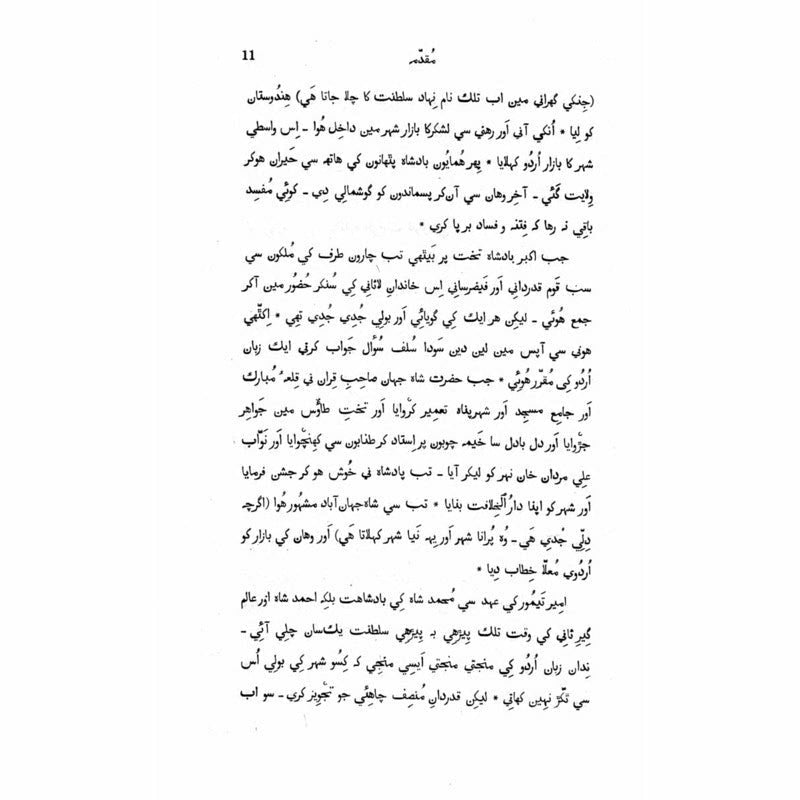 11 مُقدّمہ
(جِنکي گھراني مين اب تلك نام نِہاد سلطنت کا چلا جاتا هَي) هِندُوستان
کو لِيا * اُنکي آني اَور رهني سي لشکر کا بازار شہر مين داخِل هُوا ـ اِس واسطي
شہر کا بازار اُردُو کہلايا * پِھر هُمايُون بادشاہ پٹھانون کي هاتھ سي حَيران هوکر
وِلايت گئَي ـ آخِر وهان سي آن کر پسماندون کو گوشمالي دِي ـ کوئِي مُفسِد
باقِي نہ رها کہ فِتنہ و فساد برپا کري *
جب اکبر بادشاہ تخت پر بَيٹھي تب چارون طرف کي مُلکون سي
سب قَوم قدرداني اَور فَيضرساني اِس خاندانِ لاثاني کِي سُنکر حُضُور مين آکر
جمع هُوئي ـ ليکِن هر ايك کِي گويائِي اَور بولي جُدي جُدي تھِي * اِکٹّھي
هوني سي آپس مين لين دين سَودا سُلف سُوأل جَواب کرتي ايك زبان
اُردُو کِي مُقرّر هُوئِي * جب حضرت شاہ جہان صاحبِ قِران ني قِلعۂ مُبارك
اَور جامِع مسجِد اَور شہرپناہ تعمِير کروايا اَور تختِ طاؤُس مين جَواهِر
جڑوايا اَور دل بادل سا خَيمہ چوبون پر اِستاد کر طنابون سي کھِنچوايا اَور نَوّاب
علِي مردان خان نہر کو ليکر آيا ـ تب پادشاہ ني خُوش هو کر جشن فرمايا
اَور شہر کو اپنا دارُ الخِلافت بنايا * تب سي شاہ جہان آباد مشہُور هُوا (اگرچہ
دِلّي جُدي هَي ـ وُہ پُرانا شہر اَور يِہ نَيا شہر کہلاتا هَي) اَور وهان کي بازار کو
اُردُوي مُعلّا خِطاب دِيا *
امِير تَيمُور کي عہد سي مُحمد شاہ کِي بادشاهت بلکِہ احمد شاہ اَور عالم
گِيرِ ثانِي کي وقت تلك پِيڑهِي بہ پِيڑهِي سلطنت يكسان چلِي آئِي ـ
نِدان زبان اُردُو کِي منجتي منجتي اَيسِي منجِي کہ کِسُو شہر کِي بولِي اُس
سي ٹکّر نہين کھاتي * ليکِن قدردانِ مُنصِف چاهئِي جو تجوِيز کري ـ سو اب